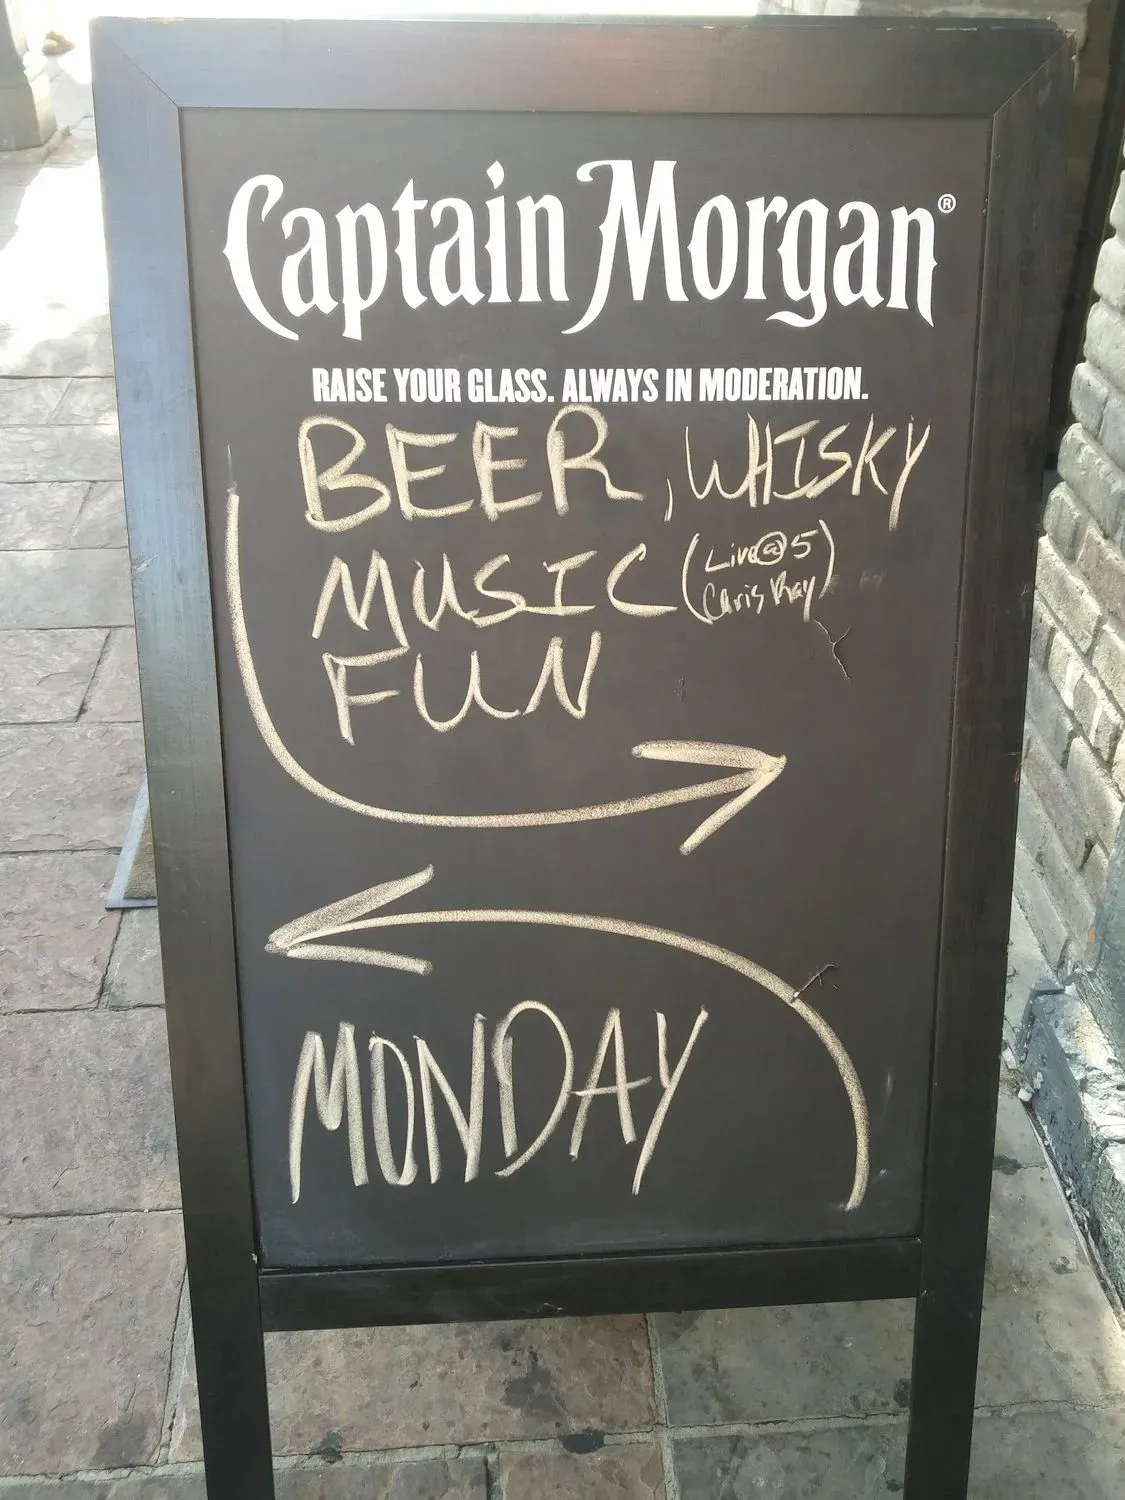 Captain Morgan®
RAISE YOUR GLASS. ALWAYS IN MODERATION.
BEER, WHISKY
MUSIC (Live@5
Chris Ray)
FUN
MONDAY